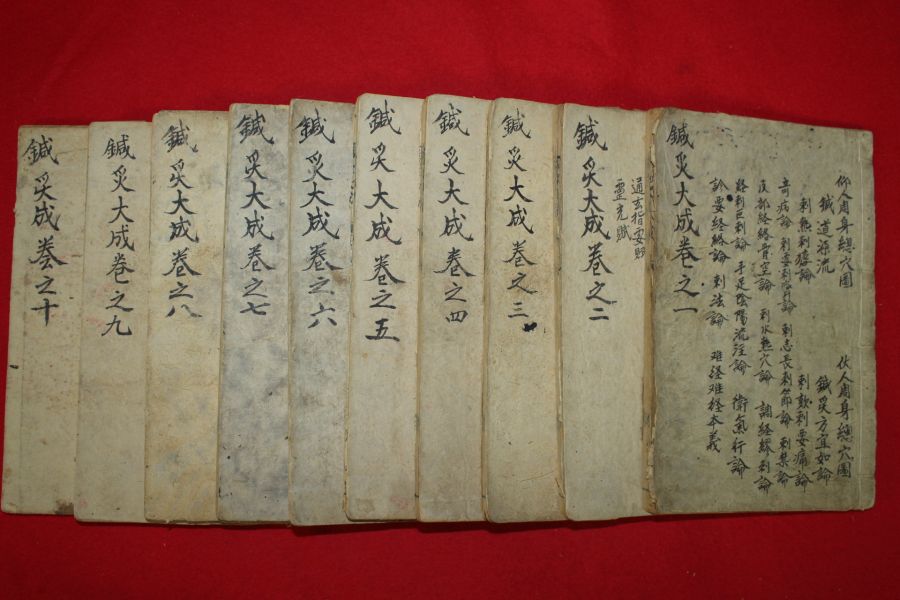 仰人周身總穴圖 伏人周身總穴圖
鍼道源流 鍼灸方宜始論
刺熱刺瘧論 刺欬刺要痛論
奇病論 刺要刺齊論 刺志長刺節論
皮部経絡骨空論 刺水熱穴論 調経繆刺論
絡刺巨刺論 手足陰陽流注論 衛氣行論
診要経終論 刺法論 难経难経本義
鍼灸大成卷之一
通玄指要賦
靈光賦
鍼灸大成卷之二
鍼灸大成卷之三
鍼灸大成卷之四
鍼灸大成卷之五
鍼灸大成卷之六
鍼灸大成卷之七
鍼灸大成卷之八
鍼灸大成卷之九
鍼灸大成卷之十